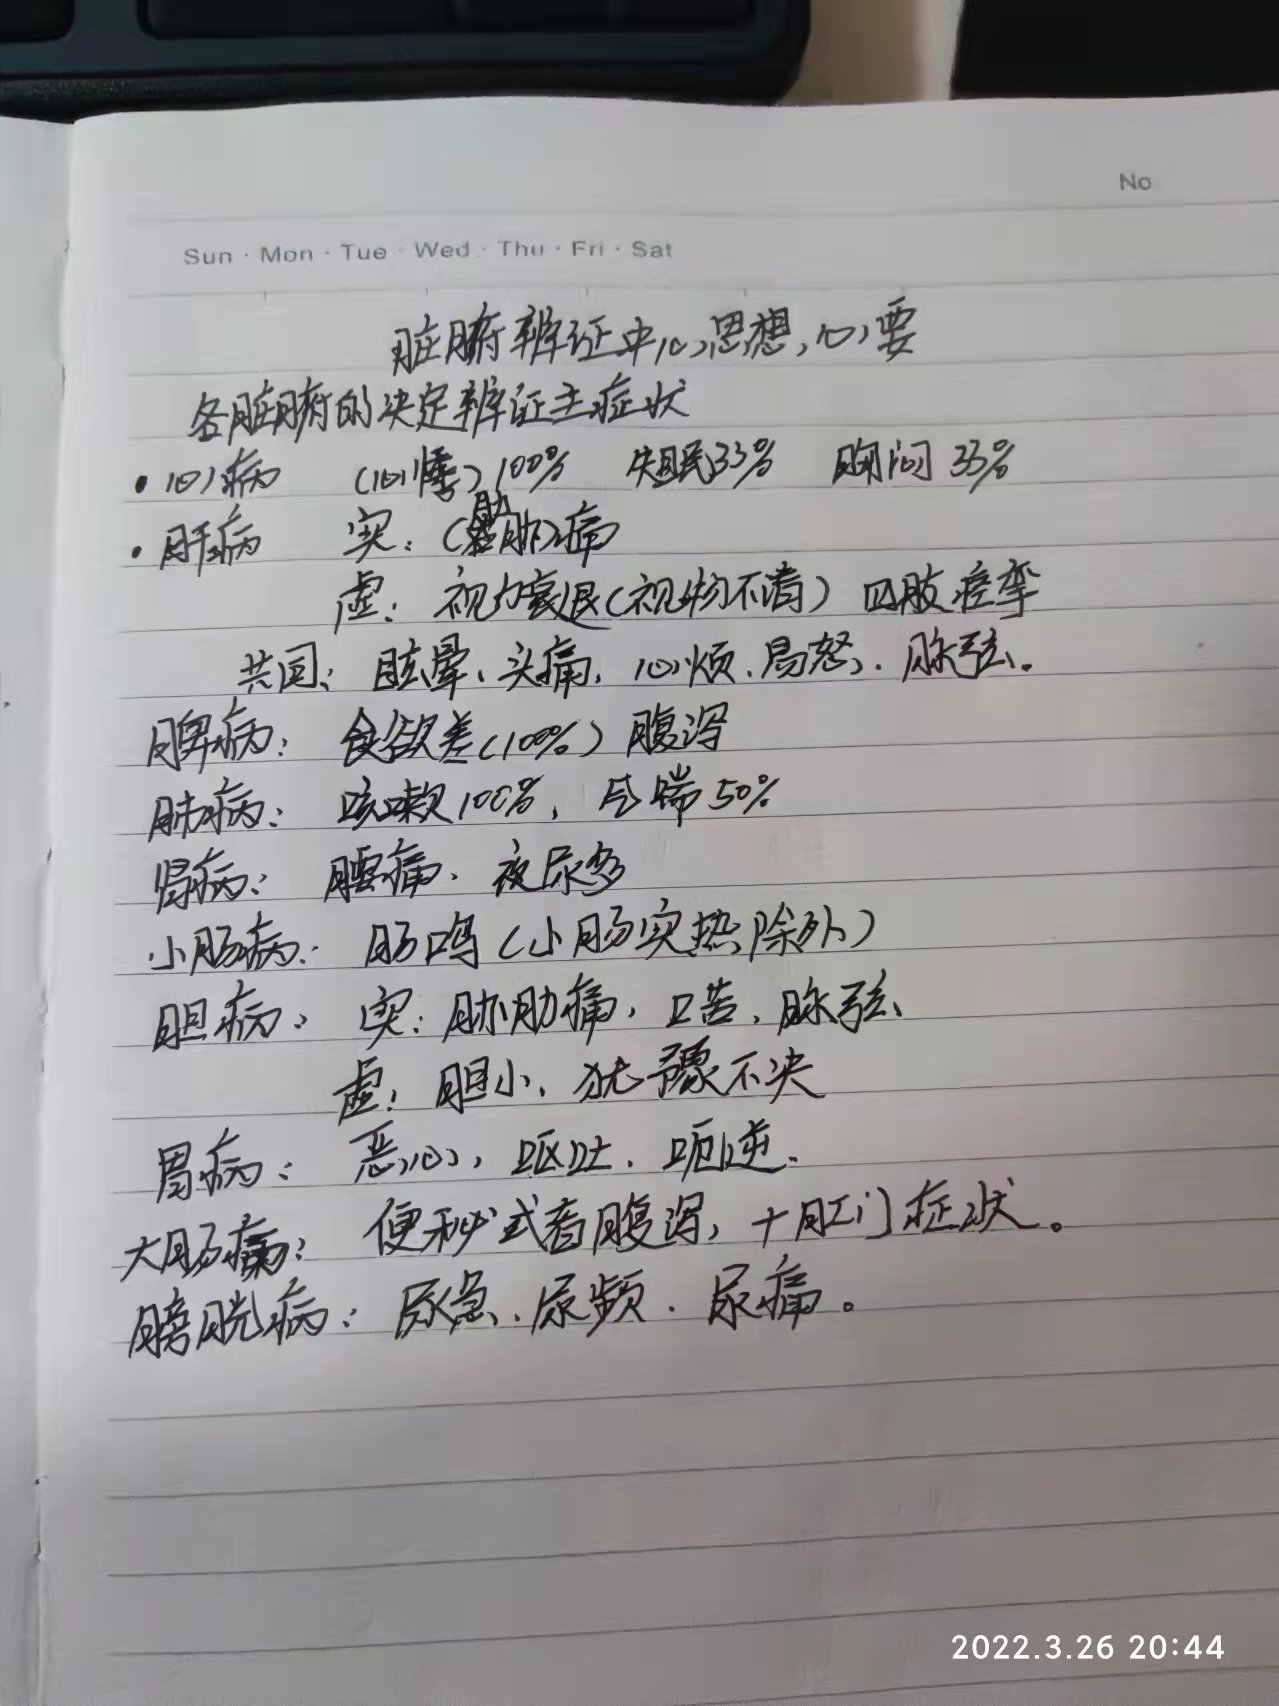 No
Sun · Mon · Tue · Wed · Thu · Fri · Sat
脏腑辨证中心思想,心要
各脏腑的决定辨证主症状
· 心病 (心悸) 100% 失眠33% 胸闷 33%
· 肝病 实: (胁肋)痛
虚: 视力衰退(视物不清) 四肢痉挛
共同: 眩晕、头痛, 心烦、易怒、脉弦。
脾病: 食欲差(100%) 腹泻
肺病: 咳嗽100%, 气喘50%
肾病: 腰痛、夜尿多
小肠病: 肠鸣(小肠实热除外)
胆病: 实: 胁肋痛, 口苦、脉弦
虚: 胆小、犹豫不决
胃病: 恶心, 呕吐、呃逆.
大肠病: 便秘或者腹泻, +肛门症状。
膀胱病: 尿急、尿频. 尿痛。
2022.3.26 20:44